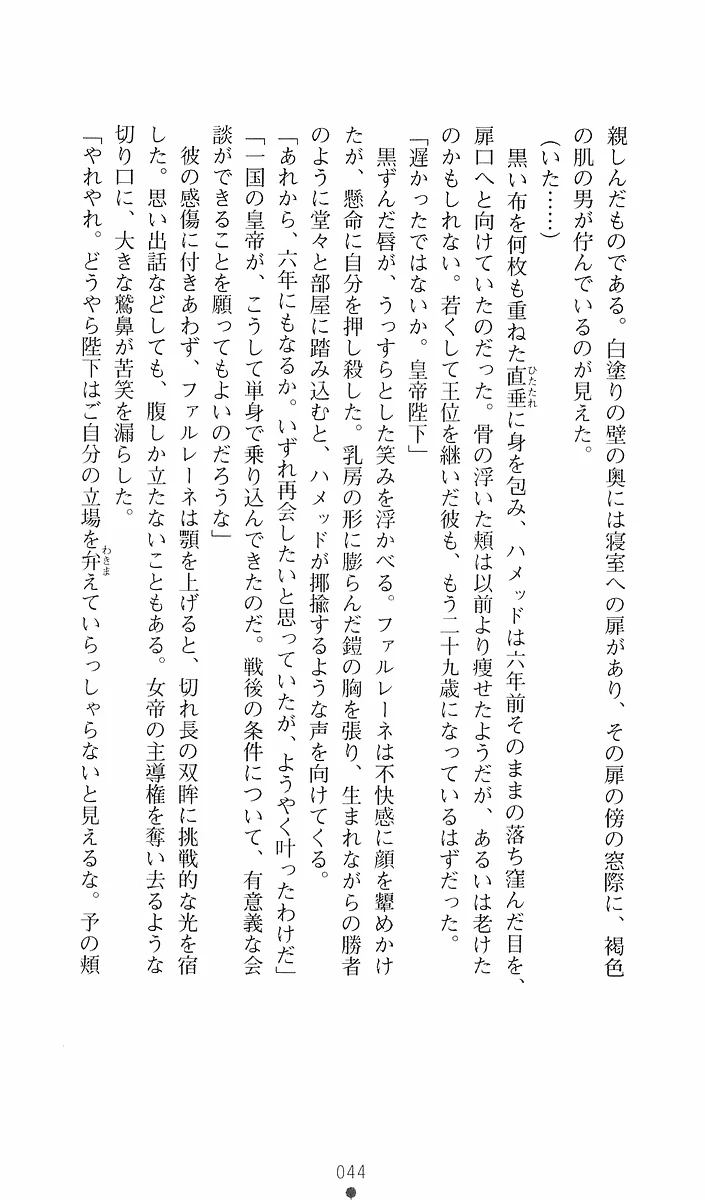 親しんだものである。白塗りの壁の奥には寝室への扉があり、その扉の傍の窓際に、褐色
の肌の男が佇んでいるのが見えた。
(いた……)
黒い布を何枚も重ねた直垂に身を包み、ハメッドは六年前そのままの落ち窪んだ目を、
ひたたれ
扉口へと向けていたのだった。骨の浮いた頬は以前より痩せたようだが、あるいは老けた
のかもしれない。若くして王位を継いだ彼も、もう二十九歳になっているはずだった。
「遅かったではないか。皇帝陛下」
黒ずんだ唇が、うっすらとした笑みを浮かべる。ファルレーネは不快感に顔を顰めかけ
たが、懸命に自分を押し殺した。乳房の形に膨らんだ鎧の胸を張り、生まれながらの勝者
のように堂々と部屋に踏み込むと、ハメッドが揶揄するような声を向けてくる。
「あれから、六年にもなるか。いずれ再会したいと思っていたが、ようやく叶ったわけだ」
「一国の皇帝が、こうして単身で乗り込んできたのだ。戦後の条件について、有意義な会
談ができることを願ってもよいのだろうな」
彼の感傷に付きあわず、ファルレーネは顎を上げると、切れ長の双眸に挑戦的な光を宿
した。思い出話などしても、腹しか立たないこともある。女帝の主導権を奪い去るような
切り口に、大きな鷲鼻が苦笑を漏らした。
「やれやれ。どうやら陛下はご自分の立場を弁えていらっしゃらないと見えるな。予の頬
わきま
044